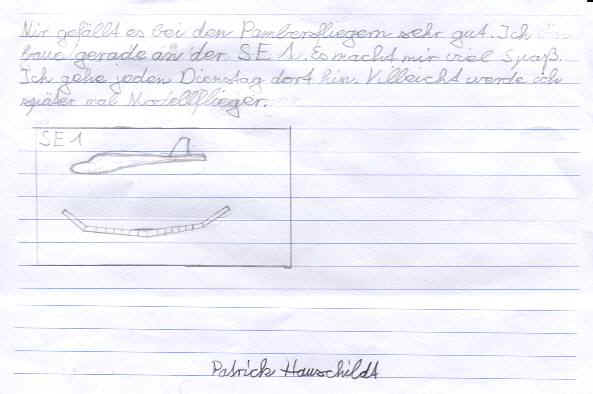 Mir gefällt es bei den Pambersfliegern sehr gut. Ich
baue gerade an der SE 1. Es macht mir viel Spaß.
Ich gehe jeden Dienstag dort hin. Villeicht werde ich
später mal Modellflieger.
SE 1
Patrick Hauschildt